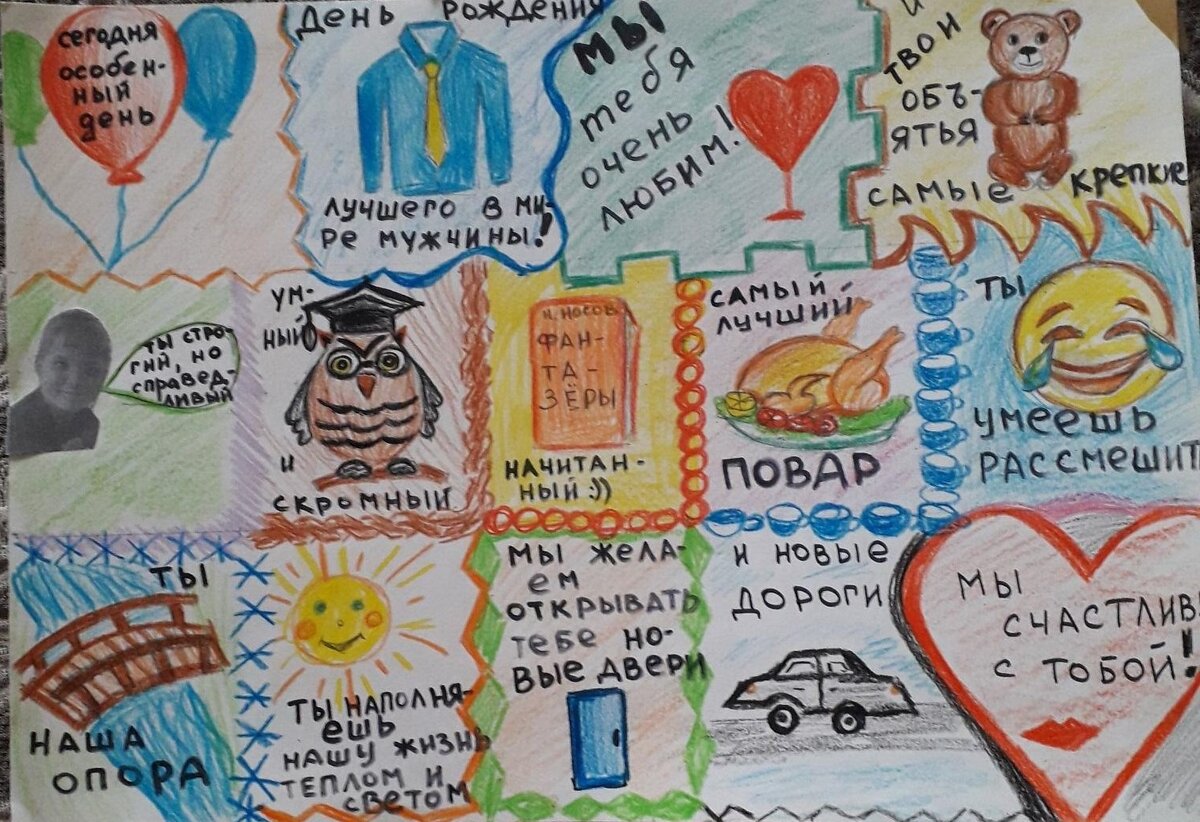 сегодня
особен-
ный
день
день рождения
лучшего в ми-
ре мужчины!
мы
тебя
очень
любим!
и
твои
объ-
ятья
самые крепкие
ты стро-
гий, но
справед-
ливый
ум-
ный
и
скромный
Н. Носов
Фан-
та-
зёры
начитан-
ный :))
самый
лучший
повар
ты
умеешь
рассмешит
ты
наша
опора
ты наполня-
ешь
нашу жизнь
теплом и
светом
мы жела-
ем
открывать
тебе но-
вые двери
и новые
дороги
мы
счастлив
с тобой!